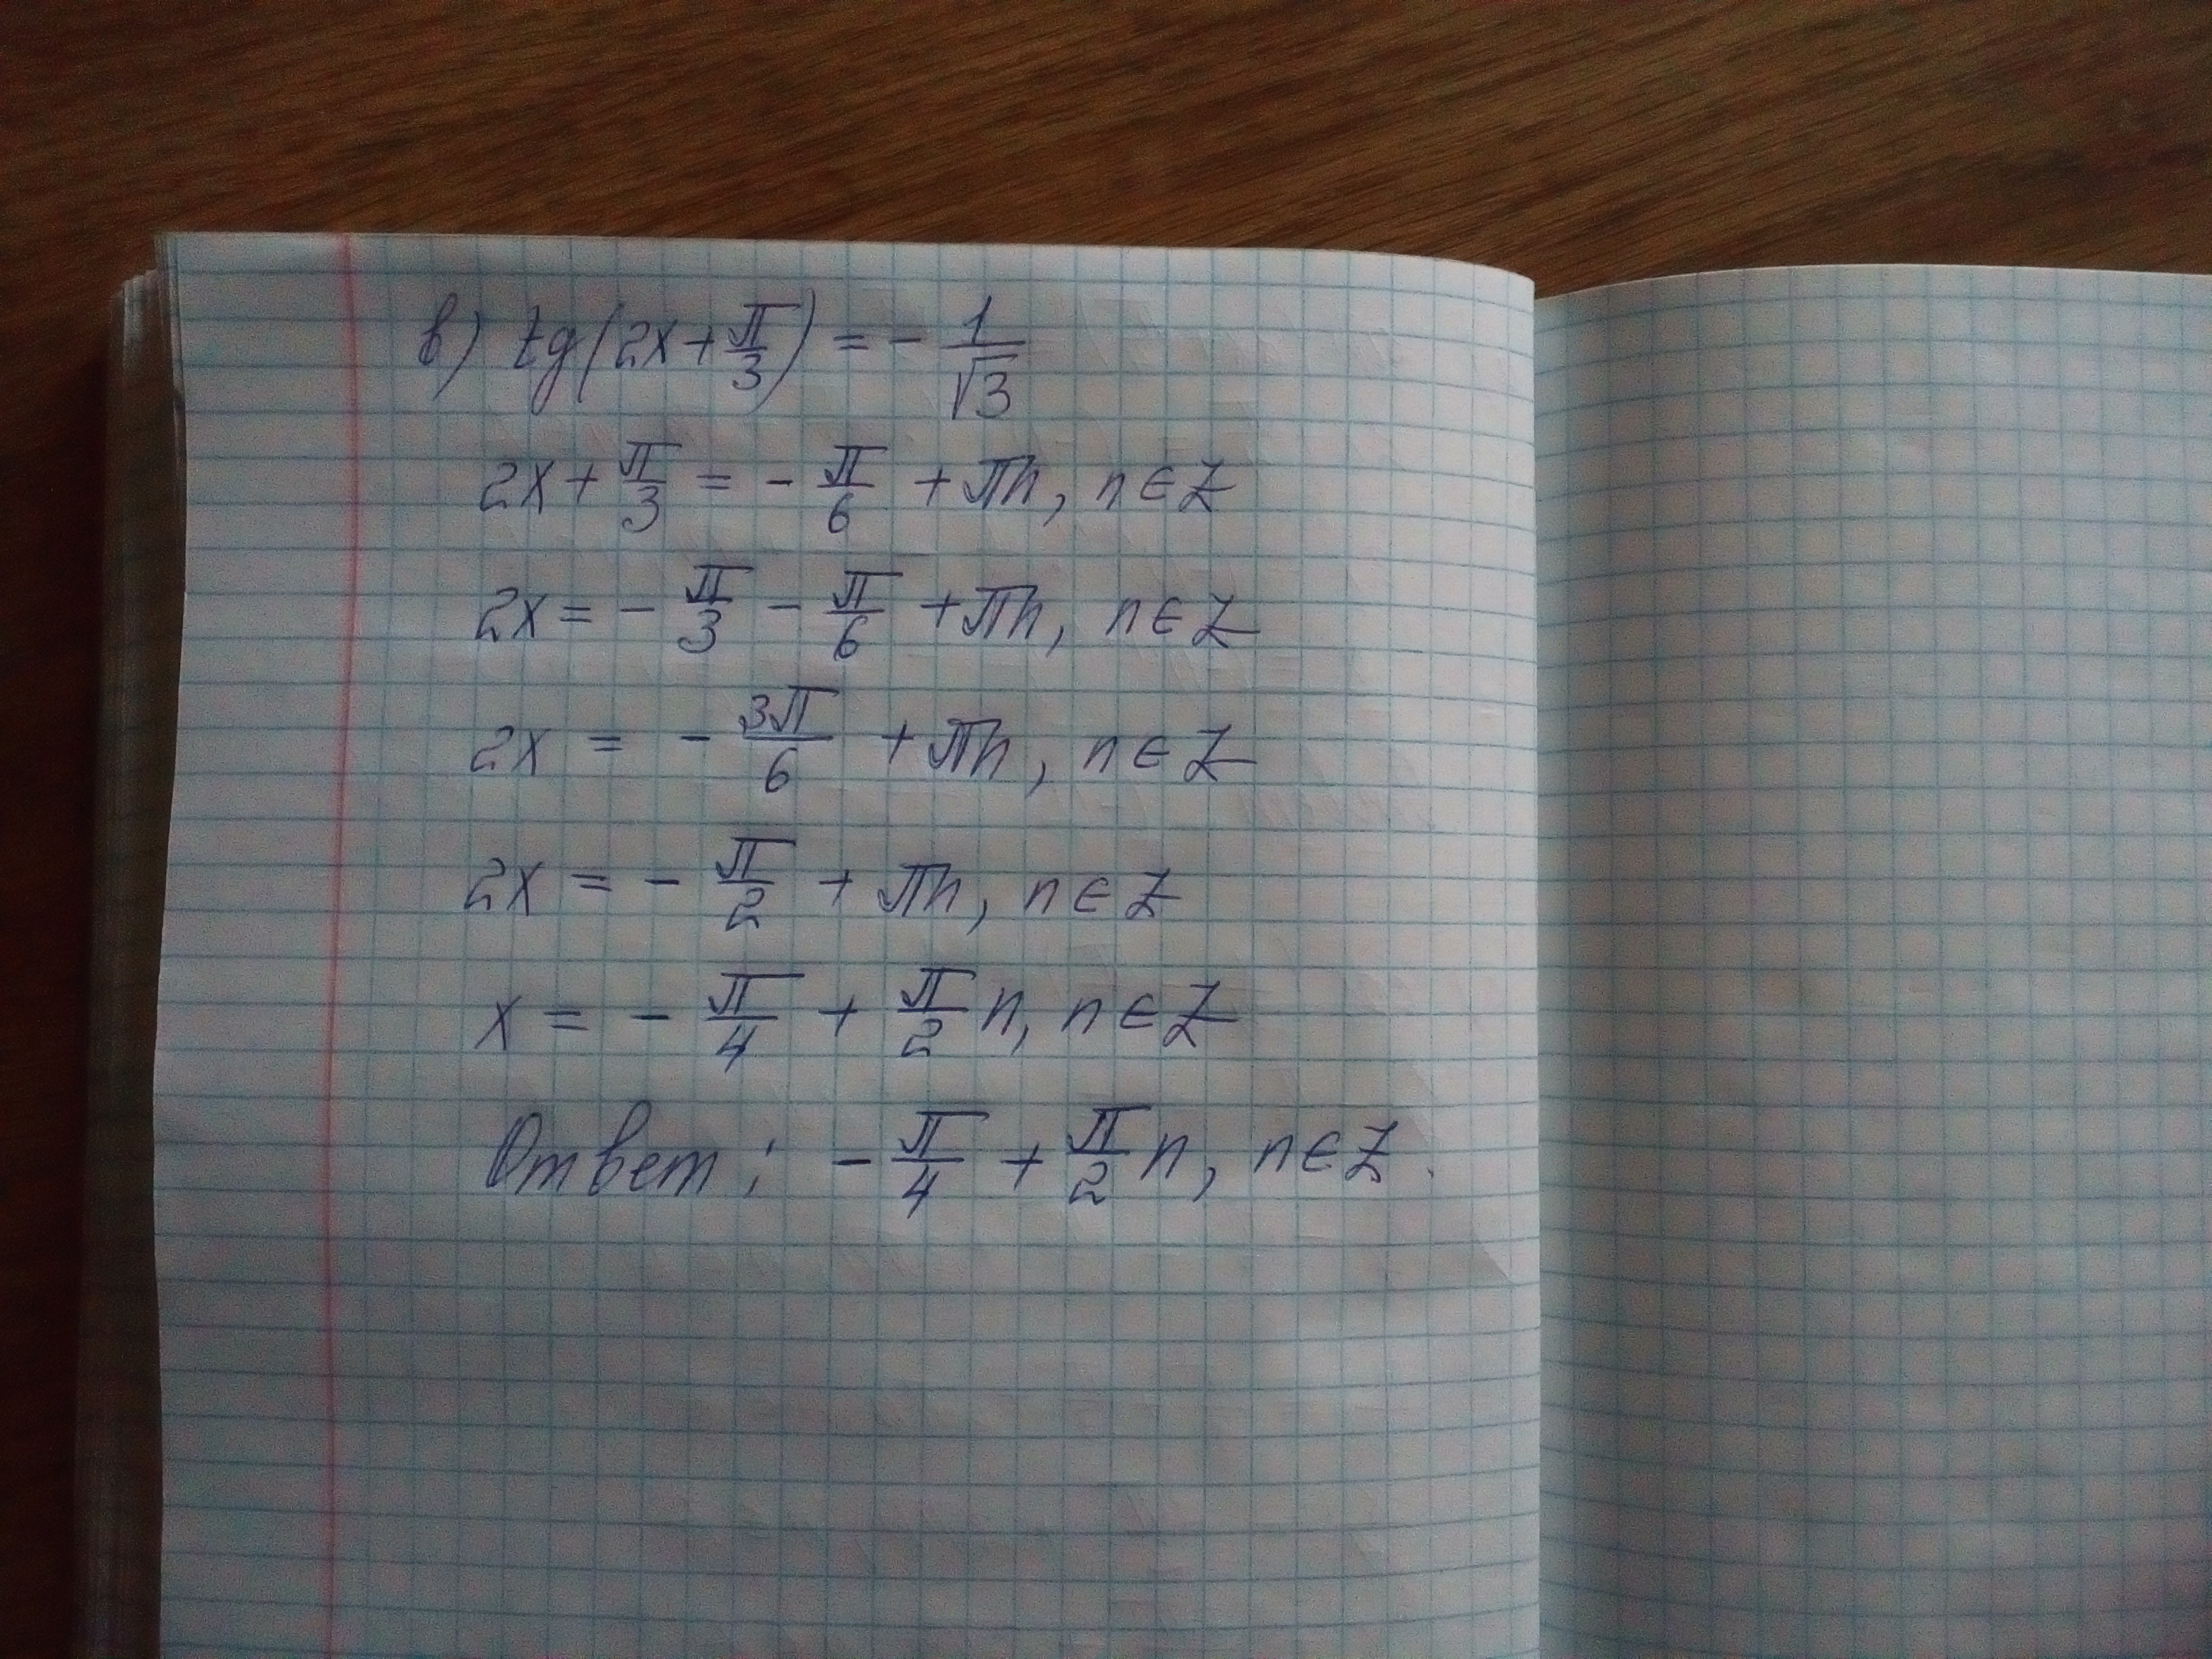 в) tg(2x + π/3) = - 1/√3
2x + π/3 = - π/6 + πn, n ∈ Z
2x = - π/3 - π/6 + πn, n ∈ Z
2x = - 3π/6 + πn, n ∈ Z
2x = - π/2 + πn, n ∈ Z
x = - π/4 + π/2 n, n ∈ Z
Ответ: - π/4 + π/2 n, n ∈ Z.